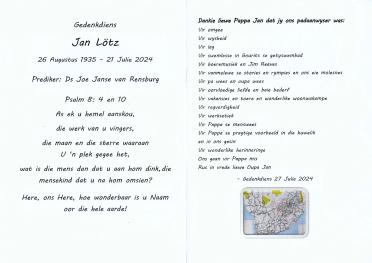 Gedenkdiens
Jan Lötz
26 Augustus 1935 - 21 Julie 2024
Prediker: Ds Joe Janse van Rensburg
Psalm 8: 4 en 10
As ek u hemel aanskou,
die werk van u vingers,
die maan en die sterre waaraan
U 'n plek gegee het,
wat is die mens dan dat u aan hom dink, die
mensekind dat u na hom omsien?
Here, ons Here, hoe wonderbaar is u Naam
oor die hele aarde!
Dankie liewe Pappa Jan dat jy ons padaanwyser was:
Vir omgee
Vir wysheid
Vir lag
Vir swemlesse in Gouritz se getyswembad
Vir boeremusiek en Jim Reeves
Vir vanmelewe se stories en rympies en oni wie molesnes
Vir pa wees en oupa wees
Vir oorvloedige liefde en baie bederf
Vir vakansies en toere en wonderlike woonwakampe
Vir regverdigheid
Vir werksetiek
Vir Pappa se menswees
Vir Pappa se pragtige voorbeeld in die huwelik
en in ons gesin
Vir wonderlike herinneringe
Ons gaan vir Pappa mis
Rus in vrede liewe Oupa Jan
- Gedenkdiens 27 Julie 2024